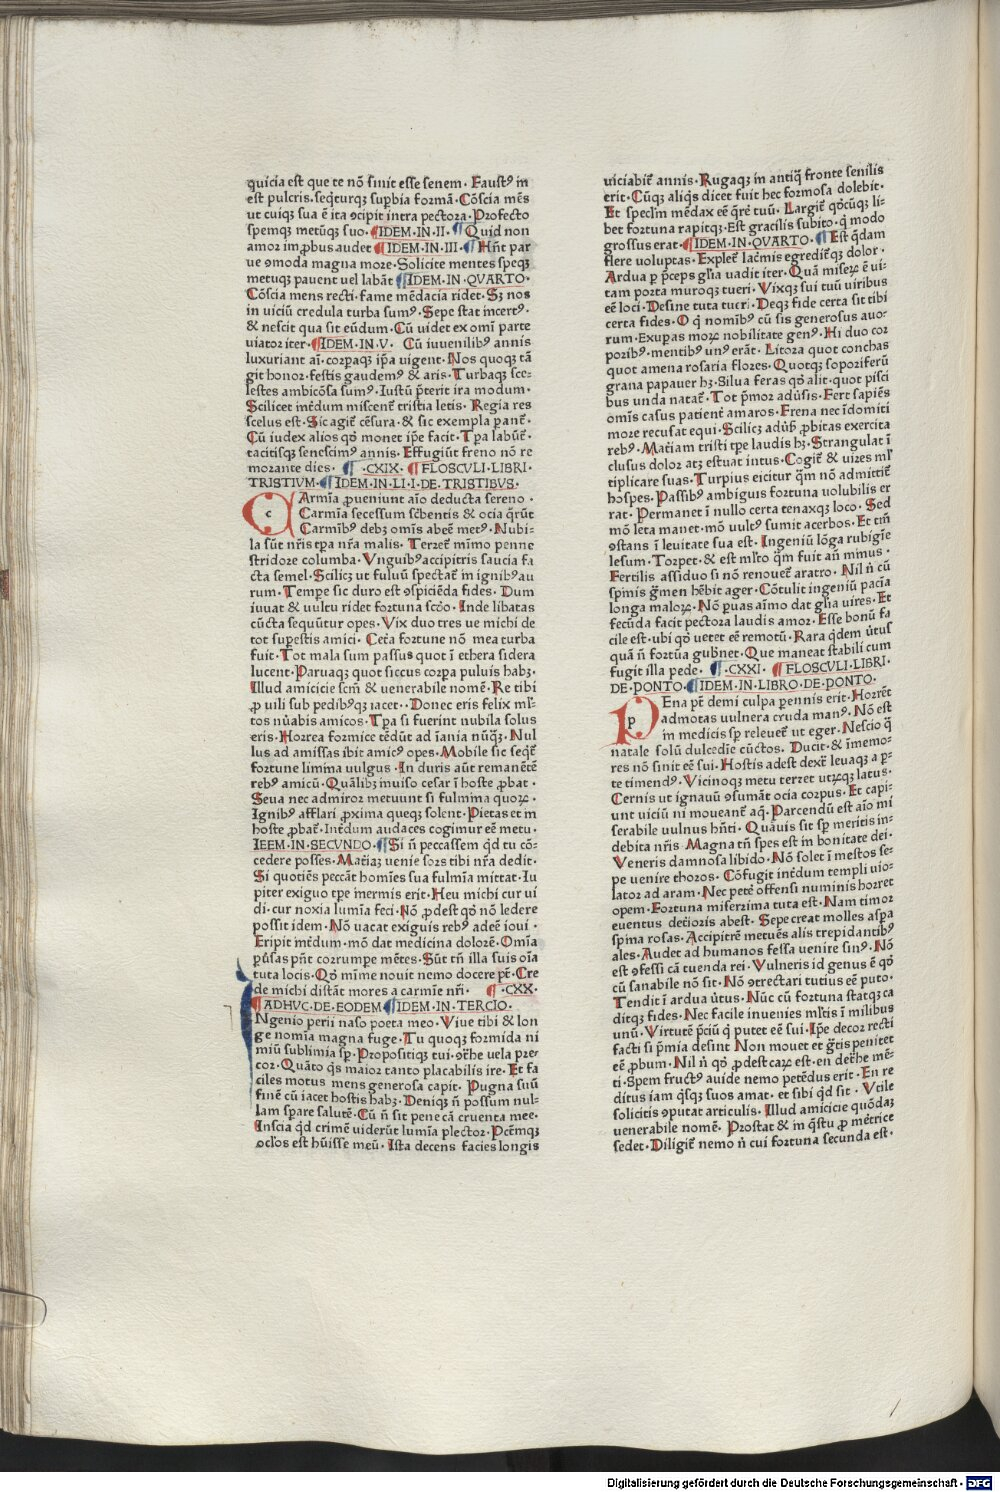 quicia est que te nō sinit esse senem· Faustꝰ in
est pulcris. seq̄turqꝫ supbia formā· Cōscia mēs
ut cuiqꝫ sua ē ita ꝯcipit intra pectora· Profecto
spemqꝫ metūqꝫ suo· ¶IDEM·IN·II· ¶Quid non
amor improbus audet ¶IDEM·IN·III·¶Hn̄t par
ue ꝯmoda magna more· Solicite mentes speqꝫ
metuqꝫ pauent uel labāt ¶IDEM·IN·QVARTO·
Cōscia mens recti· fame mēdacia ridet· Sꝫ nos
in uiciū credula turba sumꝰ· Sepe stat incertꝰ·
& nescit qua sit eūdum· Cū uidet ex om̄i parte
uiator iter· ¶IDEM·IN·V· Cū iuuenilibꝰ annis
luxuriant aī· corpaqꝫ ip̄a uigent· Nos quoqꝫ tā
git honor· festis gaudemꝰ & aris· Turbaqꝫ sce-
lestes ambicōsa sumꝰ· Iustū p̄terit ira modum·
Scilicet int̄dum miscent̄ tristia letis· Regia res
scelus est· Sic agit̄ cēsura· & sic exempla parāt̄·
Cū iudex alios qđ monet ip̄e facit· Tp̄a labūt̄·
tacitisqꝫ senescimꝰ annis· Effugiūt freno nō re
morante dies· ¶·CXIX· ¶FLOSCVLI·LIBRI·
TRISTIVM·¶IDEM·IN·LI·I·DE·TRISTIBVS·
c Armīa ꝓueniunt aīo deducta sereno·
Carmīa secessum sc̄bentis & ocia q̄rūt
Carmībꝰ debꝫ omīs abeē metꝰ· Nubi-
la sūt nr̄is tp̄a nr̄a malis· Terret̄ mīmo penne
stridore columba· Vnguibꝰ accipitris saucia fa
cta semel· Scilicꝫ ut fuluū spectat̄ in ignibꝰ au
rum· Tempe sic duro est ꝯspiciēda fides· Dum
iuuat & uultu ridet fortuna sc̄do· Inde libatas
cūcta sequūtur opes· Vix duo tres ue michi de
tot supestis amici· Cet̄a fortune nō mea turba
fuit· Tot mala sum passus quot ī ethera sidera
lucent· Paruaqꝫ quot siccus corpa puluis habꝫ·
Illud amicicie scm̄ & uenerabile nomē· Re tibi
ꝓ uili sub pedibꝰqꝫ iacet·· Donec eris felix ml̄-
tos nūabis amicos· Tp̄a si fuerint nubila solus
eris· Horrea formice tēdūt ad īania nūq̄ꝫ· Nul
lus ad amissas ibit amicꝰ opes· Mobile sic seqt̄
fortune limina uulgus· In duris aūt remanētē
rebꝰ amicū· Quālibꝫ inuiso cesar ī hoste ꝓbat·
Seua nec admiror metuunt si fulmina quoꝝ·
Ignibꝰ afflari ꝓxima queqꝫ solent· Pietas et in
hoste ꝓbat̄· Int̄dum audaces cogimur eē metu·
IEEM·IN·SECVNDO·¶Si n̄ peccassem qd tu cō-
cedere posses· Matiaꝫ uenie sors tibi nr̄a dedit·
Si quotiēs peccāt homīes sua fulmīa mittat· Iu
piter exiguo tp̄e inermis erit· Heu michi cur ui
di· cur noxia lumīa feci· Nō ꝓdest qđ nō ledere
possit idem· Nō uacat exiguis rebꝰ adeē ioui·
Eripit int̄dum· mō dat medicina dolorē· Om̄ia
pūsas pn̄t corrumpe mētes· Sūt tn̄ illa suis oīa
tuta locis· Qđ mīme nouit nemo docere pt̄· Cre
de michi distāt mores a carmīe nr̄i· ¶·CXX·
¶ADHVC·DE·EODEM ¶IDEM·IN·TERCIO·
Ngenio perii naso poeta meo· Viue tibi & lon
ge nomīa magna fuge· Tu quoqꝫ formīda ni
miū sublimia sp̄· Propositiqꝫ tui· ꝯt̄he uela pre
cor· Quāto q̄s maior tanto placabilis ire· Et fa
ciles motus mens generosa capit· Pugna suū
finē cū iacet hostis habꝫ· Deniqꝫ n̄ possum nul-
lam spare salutē· Cū n̄ sit pene cā cruenta mee·
Inscia qd crimē uiderūt lumīa plector· Pcm̄qꝫ
oclōs est hūisse meū· Ista decens facies longis
uiciabit̄ annis· Rugaqꝫ in antiq̄ fronte senilis
erit· Cūqꝫ aliq̄s dicet fuit hec formosa dolebit·
Et specl̄m mēdax eē q̄ret̄ tuū· Largit̄ qđcūqꝫ li-
bet fortuna rapitqꝫ· Est gracilis subito· q̄ modo
grossus erat· ¶IDEM·IN·QVARTO·¶Est q̄dam
flere voluptas· Explet̄ lac̄mis egreditꝰqꝫ dolor·
Ardua p p̄ceps gl̄ia uadit iter· Quā miseꝝ ē ui-
tam porta muroqꝫ tueri· Vixqꝫ sui tuū uiribus
eē loci· Desine tuta tueri· Deqꝫ fide certa sit tibi
certa fides· O q̄ nomībꝰ cū sis generosus auo-
rum· Exupas moꝝ nobilitate genꝰ· Hi duo cor
poribꝰ· mentibꝰ unꝰ erāt· Litora quot conchas
quot amena rosaria flores· Quotqꝫ soporiferū
grana papauer hꝫ· Silua feras qđ alit· quot pisci
bus unda natat̄· Tot p̄mor adūsis· Fert sapiēs
omīs casus patient̄ amaros· Frena nec īdomiti
more recusat equi· Scilicꝫ adūꝰ ꝓbitas exercita
rebꝰ· Matiam tristi tp̄e laudis hꝫ· Strangulat ī
clusus dolor atꝫ estuat intus· Cogit̄ & uires ml̄
tiplicare suas· Turpius eicitur q̄m nō admittit̄
hospes· Passibꝰ ambiguis fortuna uolubilis er
rat· Permanet ī nullo certa tenaxqꝫ loco· Sed
mō leta manet· mō uultꝰ sumit acerbos· Et tm̄
ꝯstans ī leuitate sua est· Ingeniū lōga rubigīe
lesum· Torpet· & est ml̄to q̄m fuit an̄ minus·
Fertilis assiduo si nō renouet̄ aratro· Nil n̄ cū
spinis gm̄en hēbit ager· Cōtulit ingeniū pacīa
longa maloꝝ· Nō puas aīmo dat gl̄ia uires· Et
fecūda facit pectora laudis amor· Esse bonū fa
cile est· ubi qđ uetet eē remotū· Rara q̄dem ūtus
quā n̄ fortūa gub̄net· Que maneat stabili cum
fugit illa pede· ¶·CXXI· ¶FLOSCVLI·LIBRI·
DE·PONTO·¶IDEM·IN·LIBRO·DE·PONTO·
p Ena pt̄ demi culpa pennis erit· Horrēt
admotas uulnera cruda manꝰ· Nō est
in medicis sp̄ releuet̄ ut eger· Nescio q̄
natale solū dulcedīe cūctos· Ducit· & īmemo-
res nō sinit eē sui· Hostis adest dext̄ leuaqꝫ a p-
te timendꝰ· Vicinoqꝫ metu terret utꝝqꝫ latus·
Cernis ut ignauū ꝯsumāt ocia corpus· Et capi-
unt uiciū ni moueant̄ aq̄· Parcendū est aīo mi
serabile uulnus hn̄ti· Quāuis sit sp̄ meritis in-
debita nr̄is· Magna tn̄ spes est in bonitate dei·
Veneris damnosa libido· Nō solet ī mestos se-
pe uenire thoros· Cōfugit int̄dum templi uio-
lator ad aram· Nec pet̄e offensi numinis horret
opem· Fortuna miserrima tuta est· Nam timor
euentus det̄ioris abest· Sepe creat molles aspa
spina rosas· Accipitrē metuēs alis trepidantibꝰ
ales· Audet ad humanos fessa uenire sinꝰ· Nō
est ꝯfessi cā tuenda rei· Vulneris id genus ē qđ
cū sanabile nō sit· Nō ꝯtrectari tutius eē puto·
Tendit ī ardua ūtus· Nūc cū fortuna statqꝫ ca
ditqꝫ fides· Nec facile inuenies ml̄tis ī milibus
unū· Virtutē p̄ciū q̄ putet eē sui· Ip̄e decor recti
facti si p̄mia desint Non mouet et gr̄tis penitet
eē ꝓbum· Nil n̄ qđ ꝓdest caꝝ est· en det̄he mē-
ti· Spem fructꝰ auide nemo petēdus erit· En re
ditus iam q̄sqꝫ suos amat· et sibi qd sit· Vtile
solicitis ꝯputat articulis· Illud amicicie quōdaꝫ
uenerabile nomē· Prostat & in q̄stu ꝓ met̄rice
sedet· Diligit̄ nemo n̄ cui fortuna secunda est·
Digitalisierung gefördert durch die Deutsche Forschungsgemeinschaft - DFG